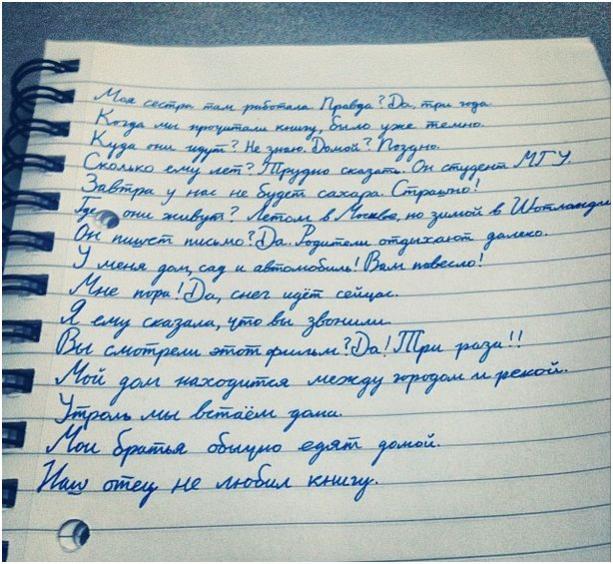 Моя сестра там работала. Правда? Да, три года.
Когда мы прочитали книгу, было уже темно.
Куда они идут? Не знаю. Домой? Поздно.
Сколько ему лет? Трудно сказать. Он студент МГУ
Завтра у нас не будет сахара. Страшно!
Где они живут? Летом в Москве, но зимой в Шотландии
Он пишет письмо? Да. Родители отдыхают далеко.
У меня дом, сад и автомобиль! Вам повезло!
Мне пора! Да, снег идёт сейчас.
Я ему сказала, что вы звонили.
Вы смотрели этот фильм? Да! Три раза!!
Мой дом находится между городом и рекой.
Утром мы встаём дома.
Мои братья обычно едят домой.
Наш отец не любил книгу.